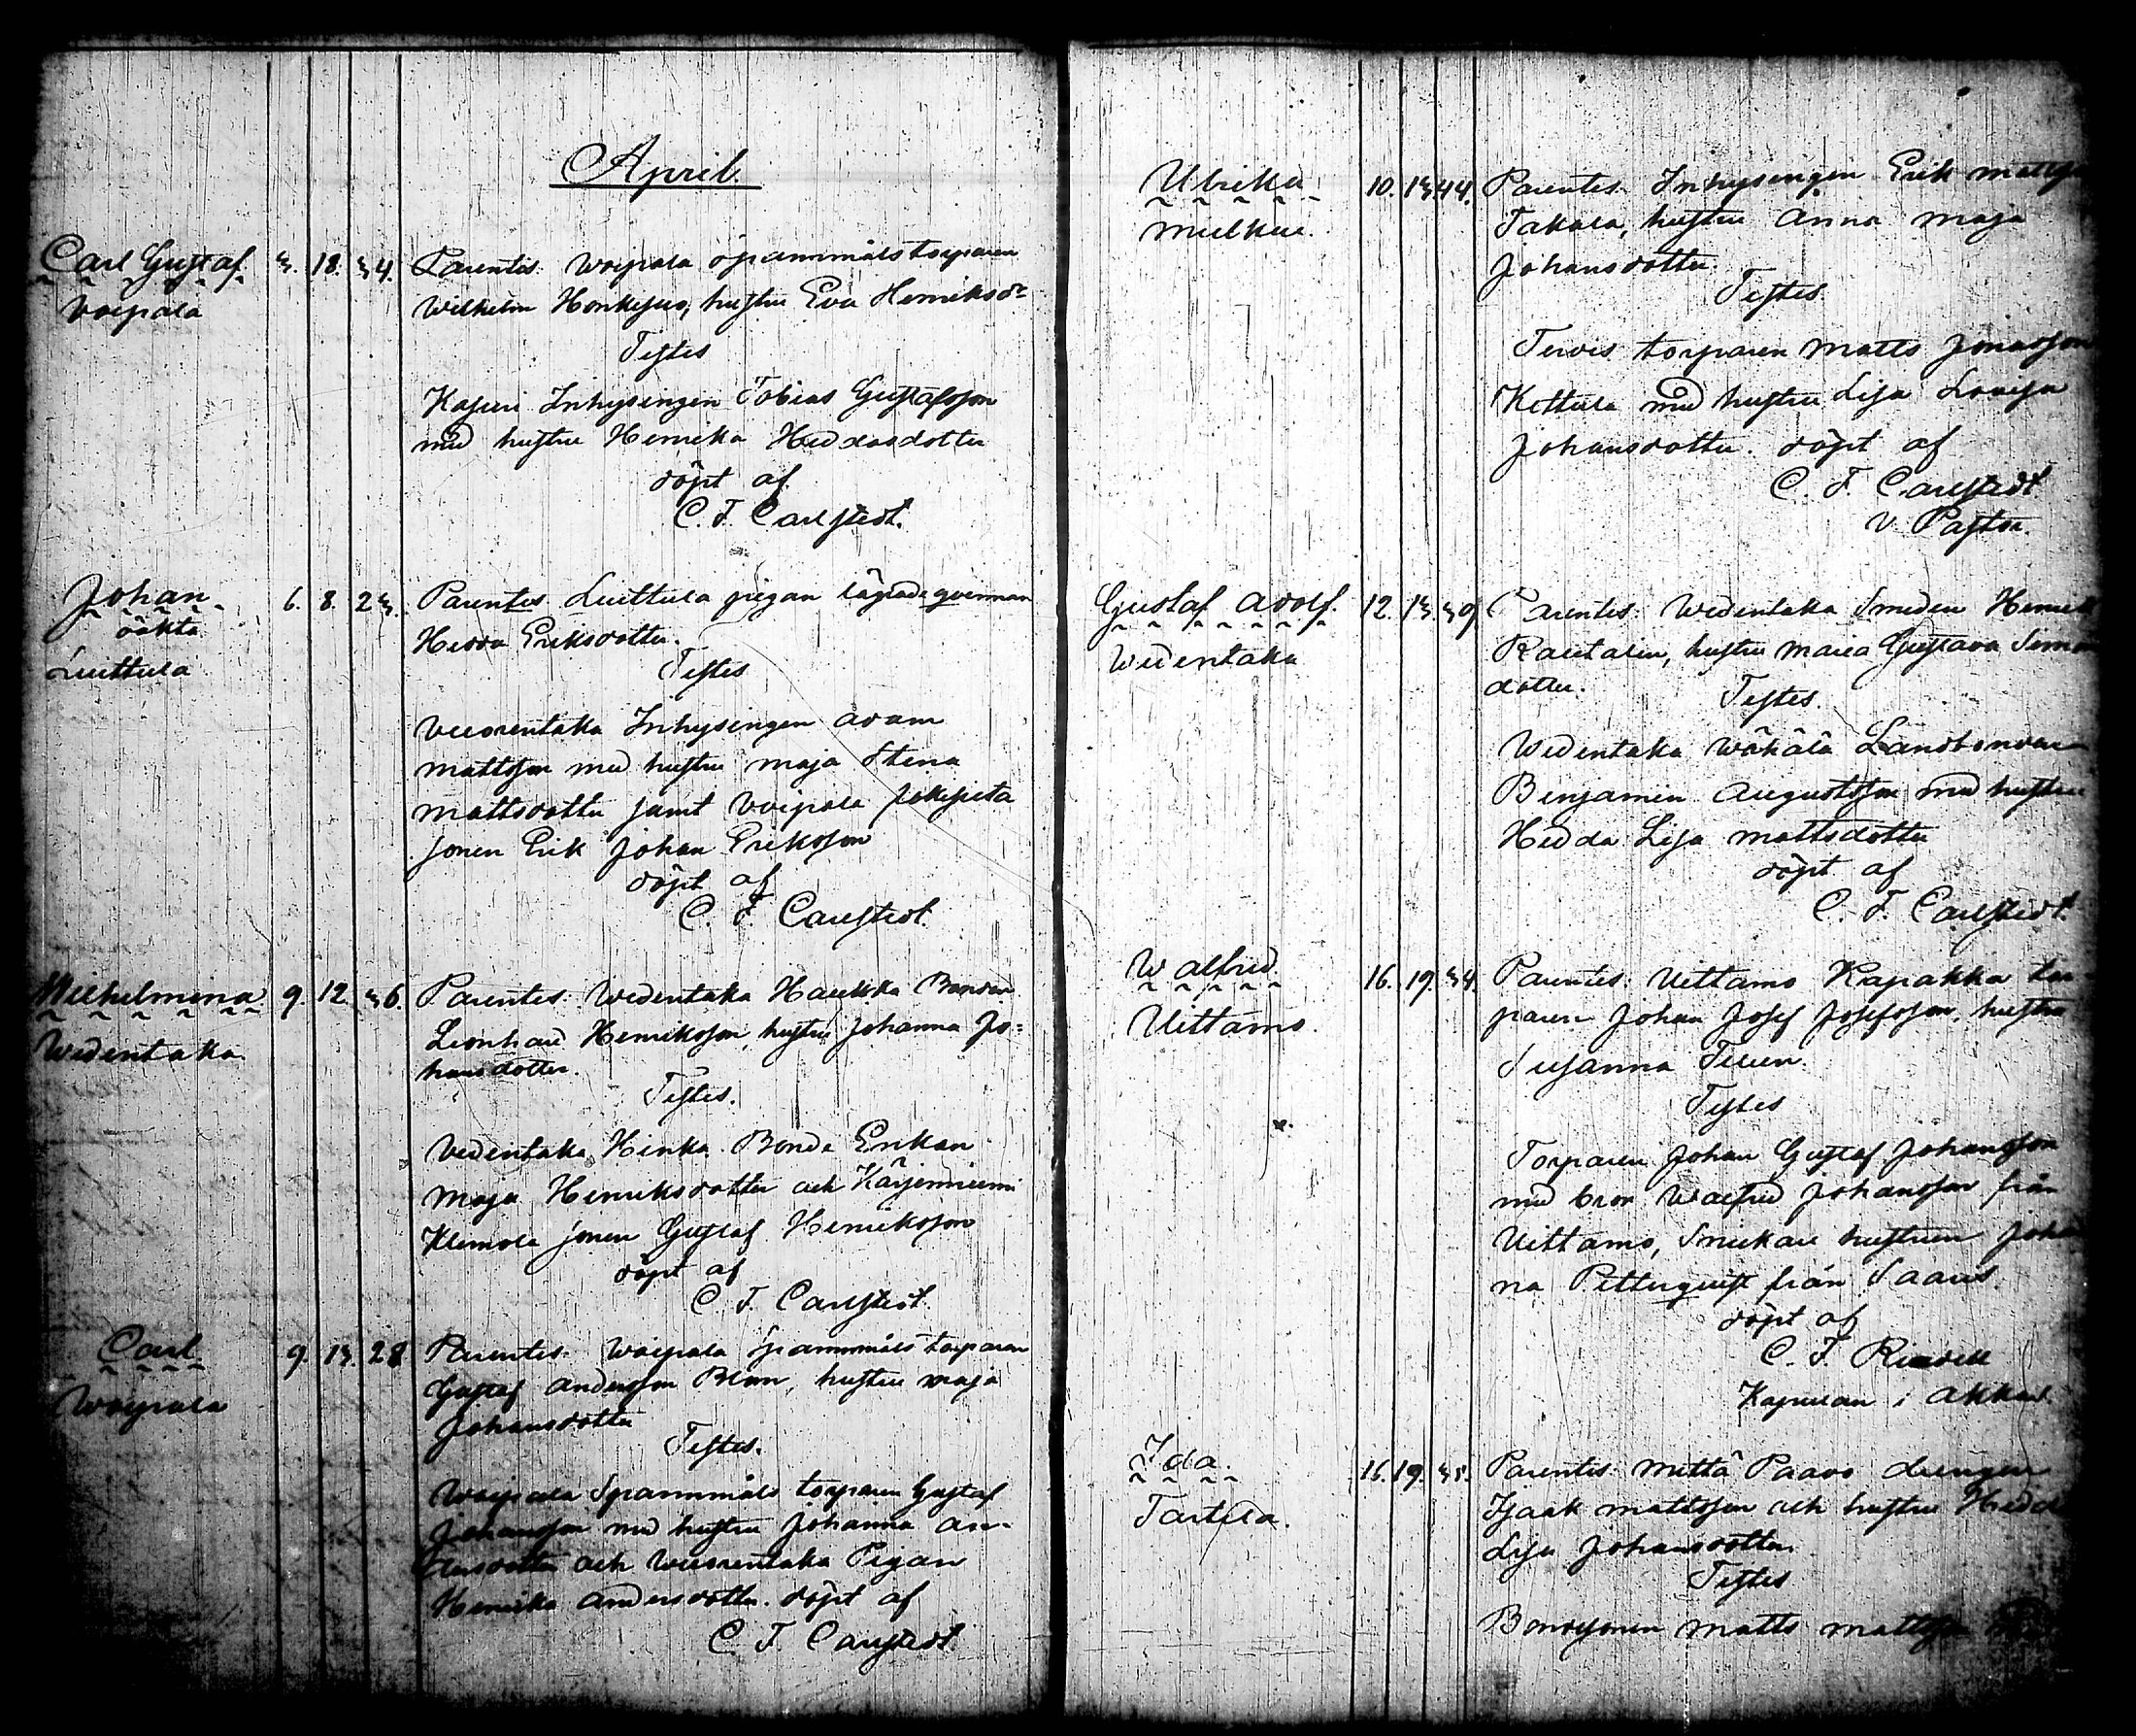 April.
Carl Gustaf. 3. 18. 34. Parentes: Woipala spannmålstorparen
Woipala Wilhelm Honkasuo, hustru Eva Henriksdr
Testes
Kasuri Inhysingen Tobias Gustafsson
med hustru Henrika Heddasdotter
döpt af
C. F. Carlstedt.
Johan 6. 8. 23. Parentes Luittula pigan lägrade qvinnan
oäkta Hedda Eriksdotter.
Luittula Testes
Wedentaka Inhysingen Adam
Mattsson med hustru Maja Stina
Mattsdotter samt Voipala
sonen Erik Johan Eriksson
döpt af
C. F. Carlstedt.
Wilhelmina 9. 12 36. Parentes: Wedentaka Haukka Bonden
Wedentaka Leonhard Henriksson, hustru Johanna Jo-
hansdotter.
Testes.
Vedentaka Hinka Bonde Enkan
Maja Henriksdotter och Kärjenniemi
Klemola sonen Gustaf Henriksson
döpt af
C. F. Carlstedt.
Carl 9. 13. 28 Parentes: Woipala Spannmåls torparen
Woipala Gustaf Andersson Blom, hustru Maja
Johansdotter
Testes.
Woipala Spannmåls torparen Gustaf
Johansson med hustru Johanna An-
dersdotter och Wedentaka Pigan
Henrika Andersdotter. döpt af
C. F. Carlstedt
Ulrika 10. 13. 44. Parentes: Inhysingen Erik Mattsson
Mulkue. Takala, hustru Anna Maja
Johansdotter.
Testes
Tervis torparen Matts Jonasson
Kettula med hustru Lisa Lovisa
Johansdotter. döpt af
C. F. Carlstedt
V. Pastor.
Gustaf Adolf. 12. 13. 39 Parentes: Wedentaka Smeden Henrik
Wedentaka Rautalin, hustru Maria Gustava Simons
dotter.
Testes.
Wedentaka Wähälä Landbonden
Benjamin Augustsson med hustru
Hedda Lisa Mattsdotter
döpt af
C. F. Carlstedt.
Walfred. 16. 19. 34. Parentes: Uittamo Kapakka tor-
Uittamo. paren Johan Josef Josefsson, hustru
Susanna
Testes
Torparen Johan Gustaf Johansson
med bror Walfrid Johansson från
Uittamo, Snickare hustrun Johan
na Petterqvist från Saaris
döpt af
C. F. Rindell
Kapellan i Akkas.
Ida. 16. 19. 35. Parentes: Mettä Paavo drängen
Tarttila. Isaak Mattsson och hustru Hedda
Lisa Johansdotter.
Testes
Bondsonen Matts Mattsson